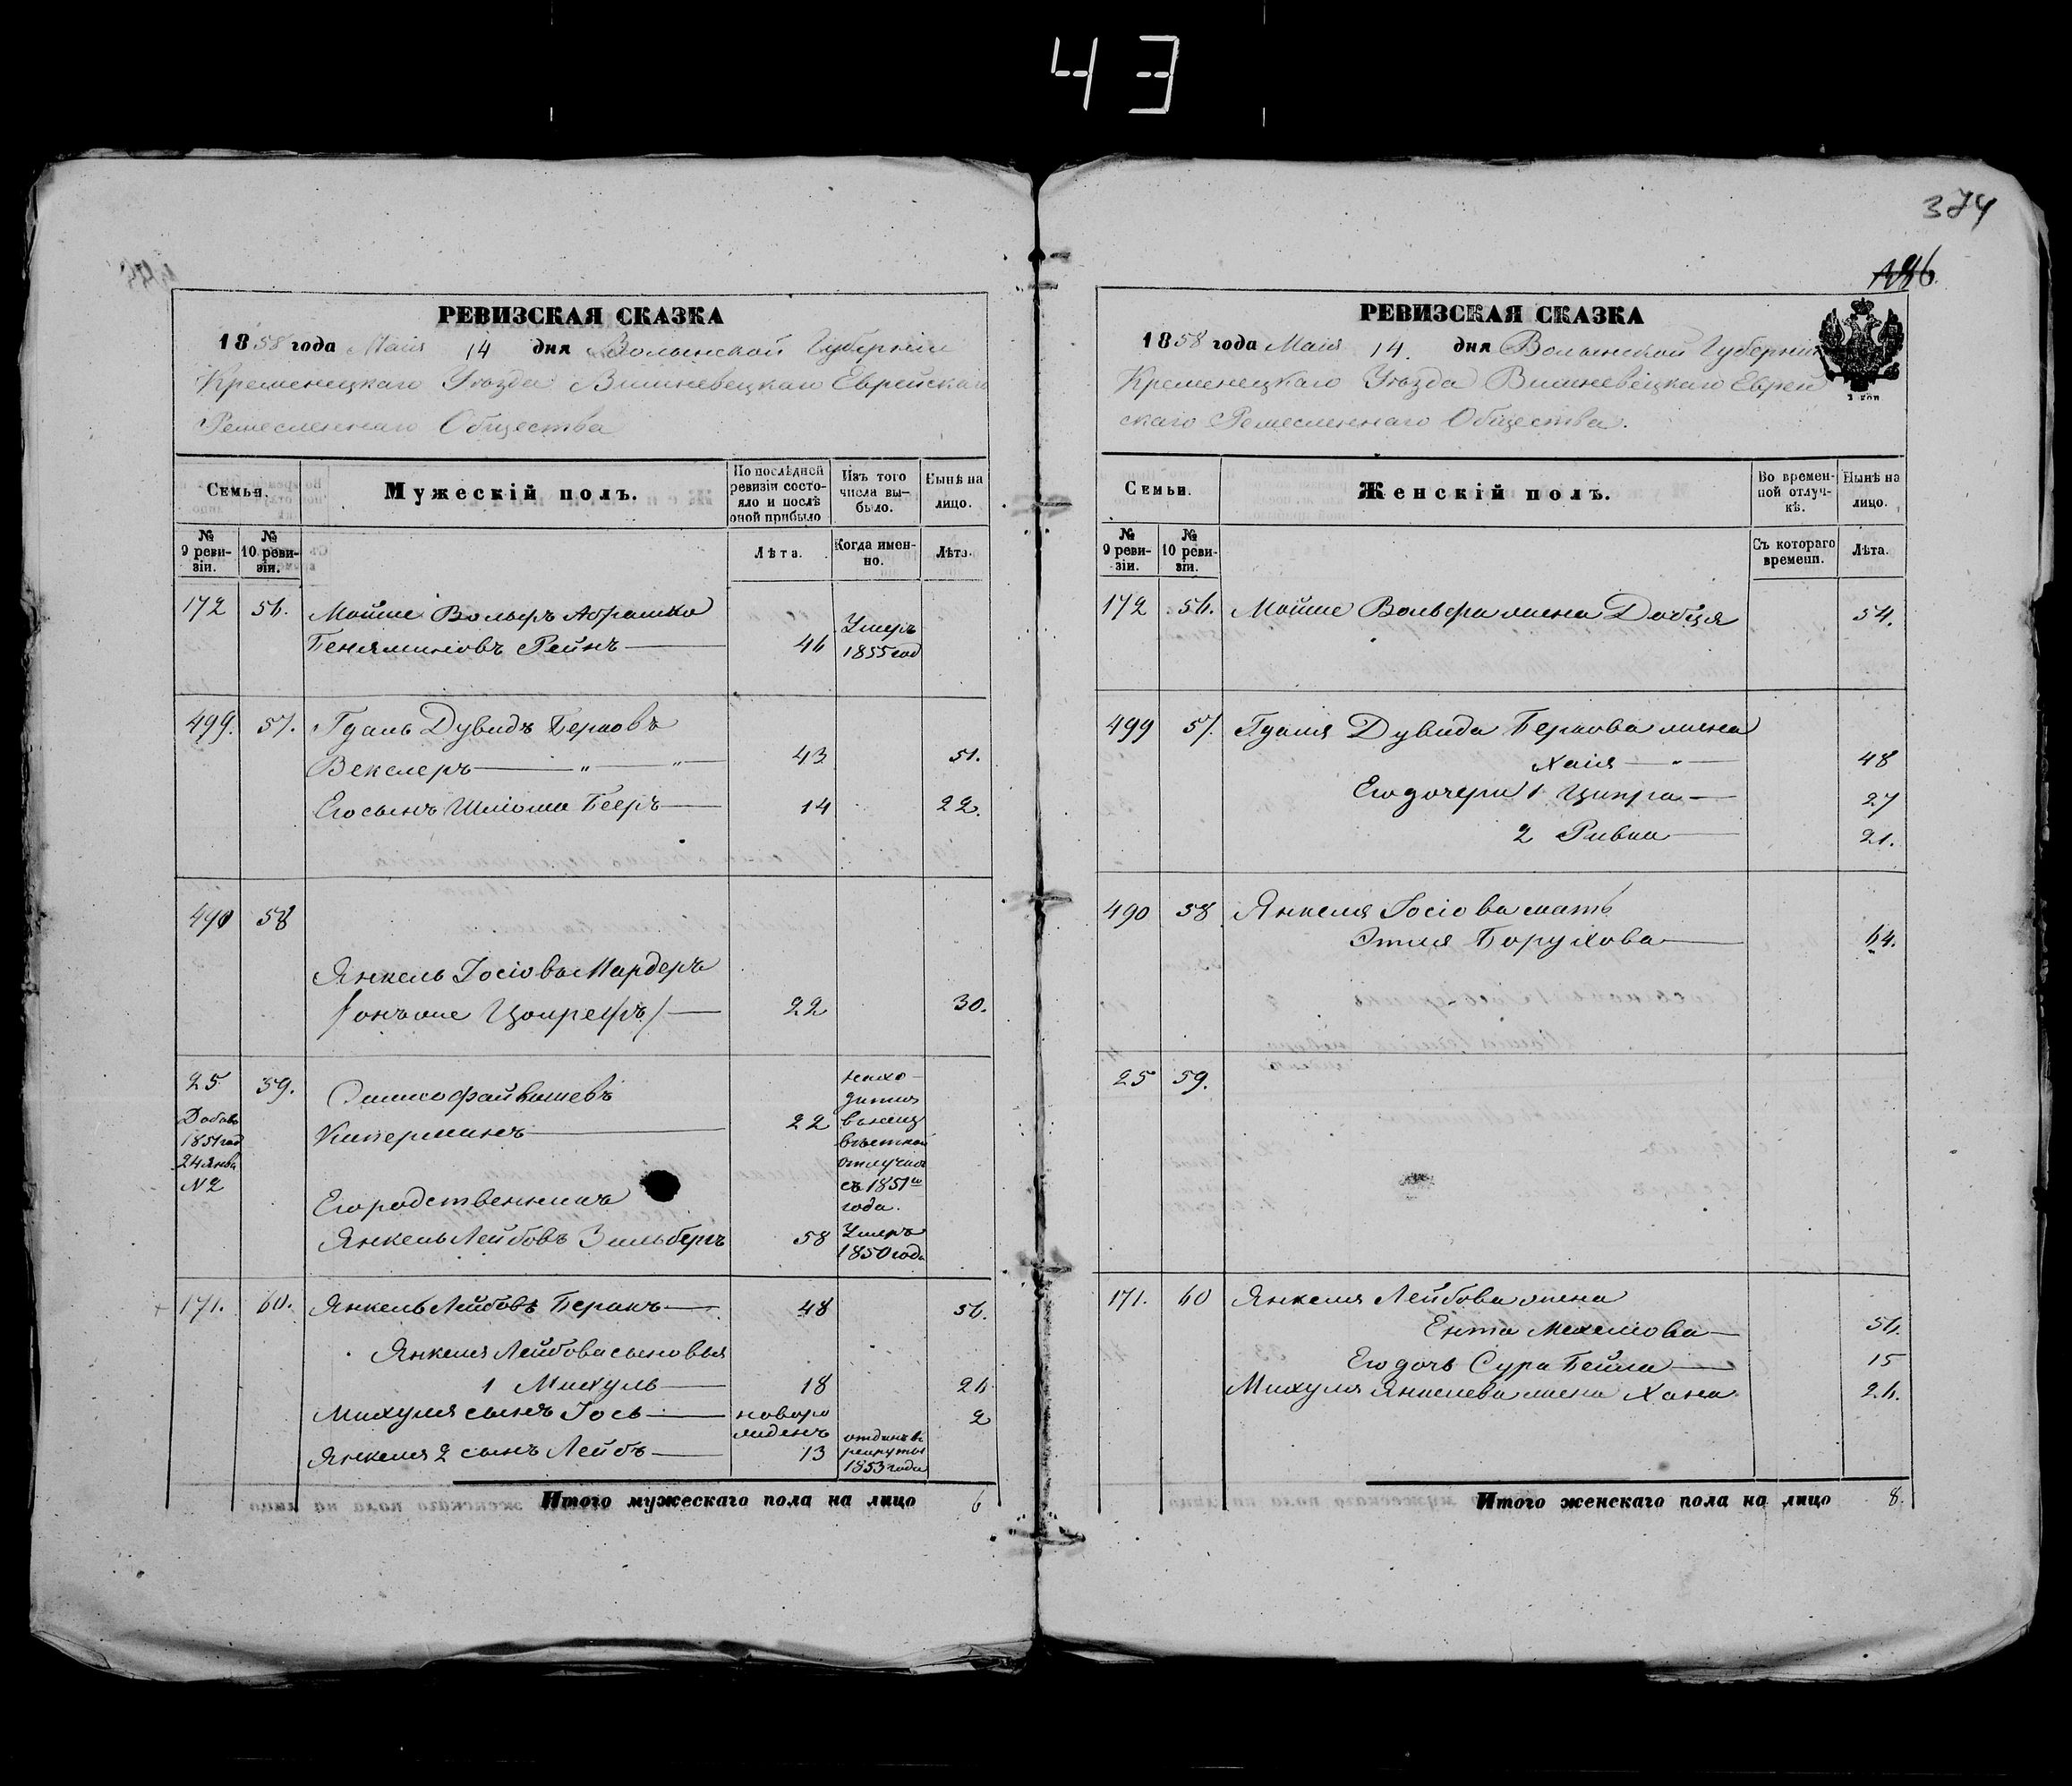 43
РЕВИЗСКАЯ СКАЗКА
1858 года Маія 14 дня Волынской Губерніи
Кременецкаго Уѣзда Вишневецкаго Еврейскаго
Ремесленнаго Общества
Семьи.
Мужескій полъ.
По послѣдней ревизіи состояло и послѣ оной прибыло
Изъ того числа выбыло.
Нынѣ на лицо.
№ 9 ревизіи.
№ 10 ревизіи.
Лѣта.
Когда именно.
Лѣта.
172 56. Мойше Вольфъ Абрашко
Беняминовъ Рейнъ 46 Умеръ 1855 год
499. 57. Гдаль Дувидъ Берковъ
Векслеръ 43 51.
Его сынъ Шліома Бееръ 14 22.
490 58
Янкель Іосіовъ Мардеръ
/онъ же / 22 30.
25 59. Файвишевъ
Добав. 1851 год 24 Янва N 2
Киперманъ 22 находится въ неизвѣстной отлучкѣ съ 1851го года.
Его родственникъ
Янкель Лейбовъ Зильберъ 58 Умеръ 1850 года
171. 60. Янкель Лейбовъ Беракъ 48 56.
Янкеля Лейбова сыновья
1 Михуль 18 26
Михуля сынъ Іось новорожденъ 2
Янкеля 2 сынъ Лейбъ 13 отданъ въ рекруты 1853 года
Итого мужескаго пола на лицо 6
374
РЕВИЗСКАЯ СКАЗКА
1858 года Маія 14. дня Волынской Губерніи
Кременецкаго Уѣзда Вишневецкаго Еврей
скаго Ремесленнаго Общества.
Семьи.
Женскій полъ.
Во временной отлучкѣ.
Нынѣ на лицо.
№ 9 ревизіи.
№ 10 ревизіи.
Съ котораго времени.
Лѣта.
172 56. Мойше Вольфа жена Добця 54.
499 57. Гдаля Дувида Беркова жена
Хаія 48
Его дочери 1 Ципра 27
2 Ривка 21.
490 58 Янкеля Іосіова мать
Этля Борухова 64.
25 59.
171. 60 Янкеля Лейбова жена
Ента Мехелова 56.
Его дочь Сура Бейла 15
Михуля Янкелева жена Хана 26.
Итого женскаго пола на лицо 8.